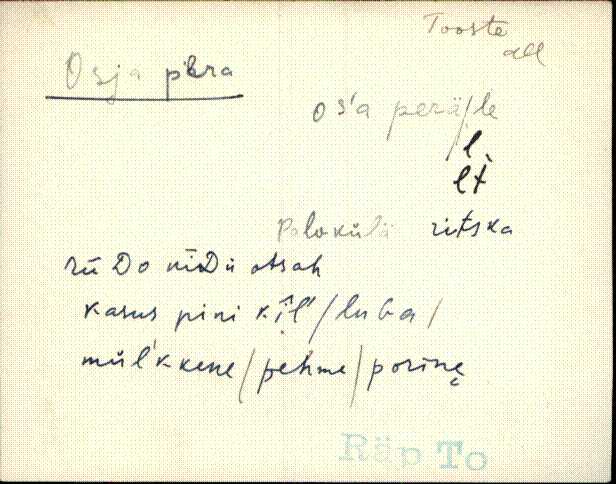 Tooste
all
Osja pera
os'a perä/le
l.
lt
Poloküla ritska
rüDo niDü otsah
kasus pini kīl'/luba/
mül'kkene/pehme/porine
Räp To